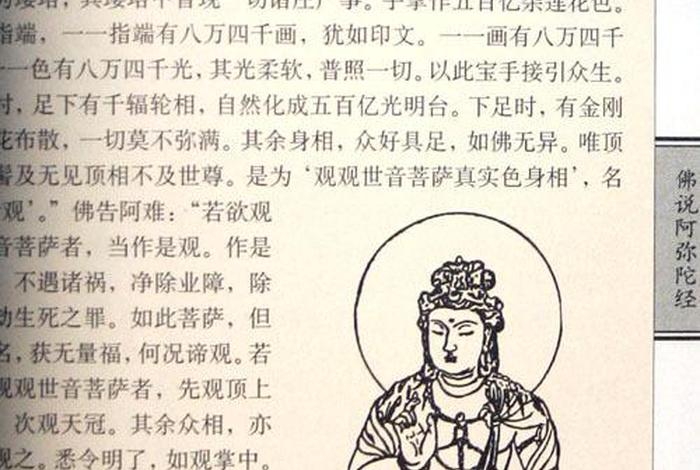 璎珞，其璎珞中普现一切诸庄严事。手掌作五百亿杂莲花色。
指端，一一指端有八万四千画，犹如印文。一一画有八万四千
一一色有八万四千光，其光柔软，普照一切。以此宝手接引众生。
时，足下有千辐轮相，自然化成五百亿光明台。下足时，有金刚
花布散，一切莫不弥满。其余身相，众好具足，如佛无异。唯顶
髻及无见顶相不及世尊。是为‘观观世音菩萨真实色身相’，名
观’。”佛告阿难：“若欲观
音菩萨者，当作是观。作是
不遇诸祸，净除业障，除
劫生死之罪。如此菩萨，但
名，获无量福，何况谛观。若
观观世音菩萨者，先观顶上
次观天冠。其余众相，亦
观之。悉令明了，如观掌中。
佛说阿弥陀经